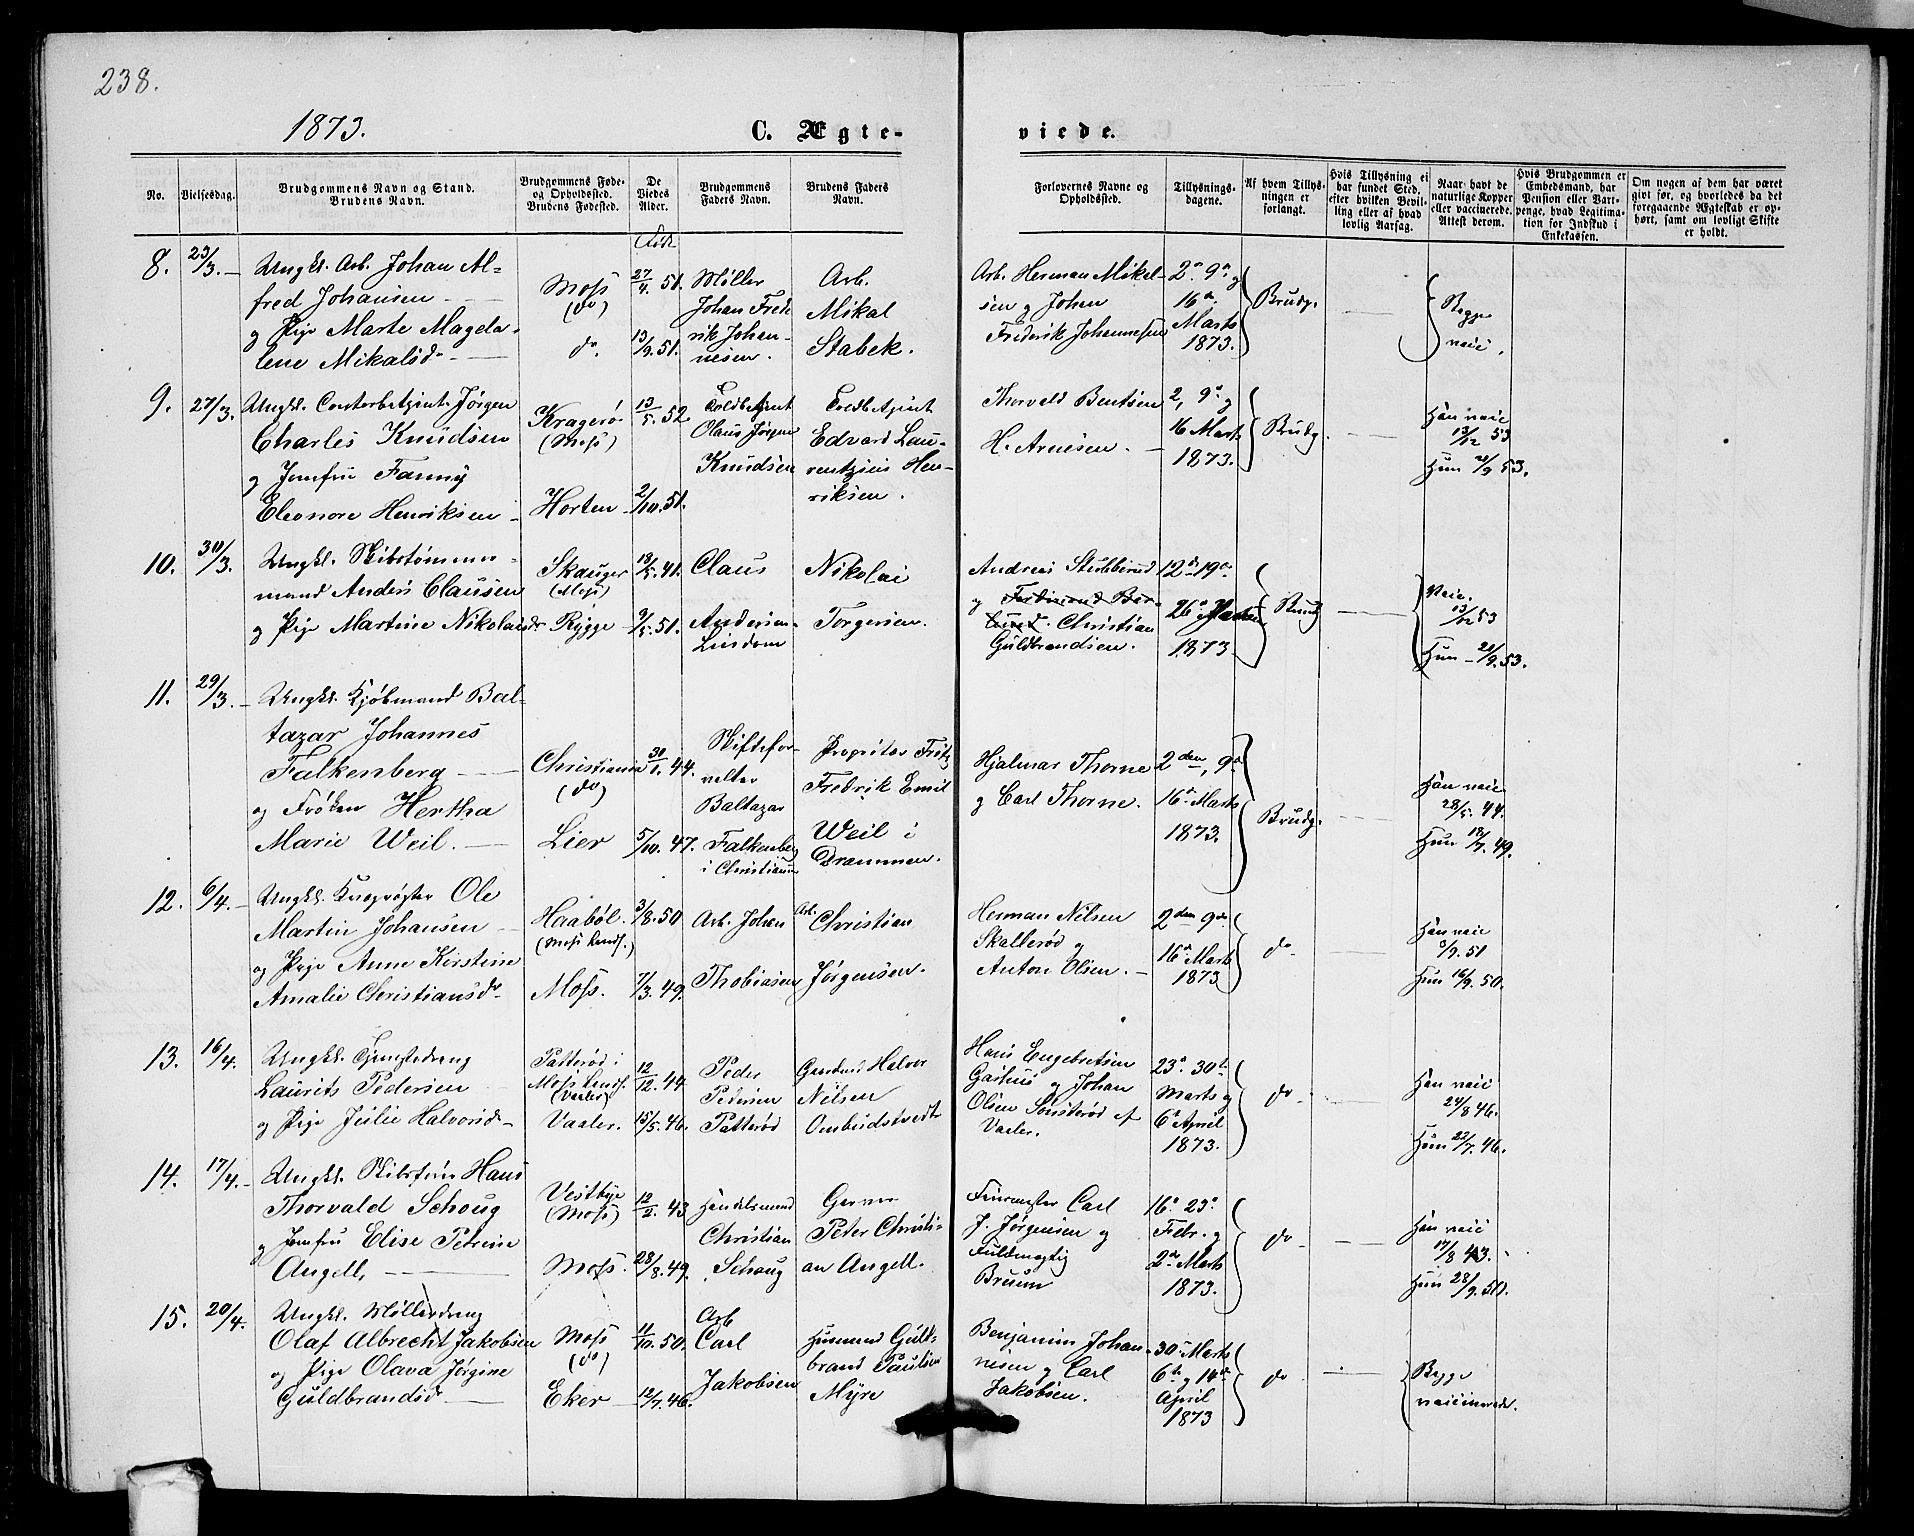 238.
1873.
C. Ægte-
viede.
No.
Vielsesdag.
Brudgommens Navn og Stand.
Brudens Navn.
Brudgommens Føde-
og Opholdsted.
Brudens Fødested.
De
Viedes
Alder.
Brudgommens
Faders Navn.
Brudens Faders
Navn.
Forlovernes Navne og
Opholdssted.
Tillysnings-
dagene.
Af hvem Tillys-
ningen er
forlangt.
Hvis Tillysning ei
har fundet Sted,
efter hvilken Bevil-
ling eller af hvad
lovlig Aarsag.
Naar havt de
naturlige Kopper
eller vaccinerede.
Attest derom.
Hvis Brudgommen er
Embedsmand, har
Pension eller Vart-
penge, hvad Legitima-
tion for Indskud i
Enkekassen.
Om nogen af dem har været
givt før, og hvorledes da det
foregaaende Ægteskab er op-
hørt, samt om lovligt Skifte
er holdt.
8.
23/3.
Ungkl. Arb. Johan Al-
fred Johansen
og Pige Marte Magda-
lene Mikalsd.
Moss
(do)
do.
Født
27/4. 51.
13/9. 51.
Møller
Johan Frede
rik Johan-
nesen.
Arb.
Mikal
Stabek.
Arb. Herman Mikel-
sen og Johan
Frederik Johannessen
2. 9. og
16.
Marts
1873.
Brudg.
Begge
vacc.
9.
27/3.
Ungkl. Contorbetjent Jørgen
Charles Knudsen
og Jomfru Fanny
Eleonore Henriksen
Kragerø
(Moss)
Horten
13/5. 52
2/10. 51.
Toldbetjent
Olaus Jørgen
Knudsen
Toldbetjent
Edvard Lau-
rentzius Hen-
riksen.
Thorvald Bentsen
H. Arnesen.
2, 9. og
16 Marts
1873.
Brudg.
Han vacc
13/12 53
Hun 20/9 53.
10.
30/3.
Ungkl. Skibstømmer-
mand Anders Clausen
og Pige Martine Nikolaisdr
Skauger
(Moss)
Rygge
18/5. 41.
9/5. 51.
Claus
Andersen
Nikolai
Torgersen.
Andreas Stubberud
og Ferdinand Ber-
lund. Christian
Guldbrandsen.
12. 19.
26. Januar
1873
Brudg
Vacc.
13/12 53
Hun 20/9. 53.
11.
29/3.
Ungkl. Kjøbmand Bal-
tazar Johannes
Falkenberg
og Frøken Hertha
Marie Weil.
Christiania
(do)
Lier
30/1. 44.
5/10. 47.
Skiftefor-
valter
Baltazar
Falkenberg
i Christiania
Proprietær Fritz
Fredrik Emil
Weil i
Drammen.
Hjalmar Thorne
og Carl Thorne.
2den, 9.
16. Marts
1873.
Brudg.
Han vacc
28/5. 44.
Hun 18/7. 49.
12.
6/4.
Ungkl. Ole
Martin Johansen
og Pige Anne Kirstine
Amalie Christiansd.
Haabøl.
(Moss Lands.)
Moss.
3/8. 50
7/3. 49.
Arb. Johan
Thobiasen
Arb. Christian
Jørgensen.
Herman Nilsen
Skallerød og
Anton Olsen.
2den 9de
16. Marts
1873
do
Han vacc
3/9. 51
Hun 16/9. 50.
13.
16/4.
Ungkl. Tjenestedreng
Laurits Pedersen
og Pige Julie Halvorsd.
Patterød i
Moss Lands.
(Vaaler)
Vaaler.
12/12. 44
15/5. 46.
Peder
Pedersen
Patterød
Gaardmd Halvor
Nilsen
Ombudstvedt
Hans Engebretsen
Gashus og Johan
Olsen Sønsterød af
Vaaler.
23. 30te
Marts og
6. April
1873.
do
Han vacc
24/8 46.
Hun 23/7. 46.
14.
17/4.
Ungkl. Hans
Thorvald Schoug
og Jomfru Elise Petrine
Angell,
Vestbye
(Moss)
Moss.
12/2. 43
28/8. 49.
Handelsmand
Christian
Schoug
Garver
Peter Christi-
an Angell.
Carl
J. Jørgensen og
Fuldmægtig
Bruun
16. 23.
Febr. og
2. Marts
1873.
do
Han vacc
17/8 43.
Hun 28/9. 50.
15.
20/4.
Ungkl. Møllerdreng
Olaf Albrecht Jakobsen
og Pige Olava Jørgine
Guldbrandsd.
Moss
(do)
Eker
11/10. 50.
12/7. 46.
Arb
Carl
Jakobsen
Husmand Guld-
brand Paulsen
Myre
Benjamin Johan-
nesen og Carl
Jakobsen.
30. Marts
6te og 14de
April
1873
do
Begge
vaccinerede.